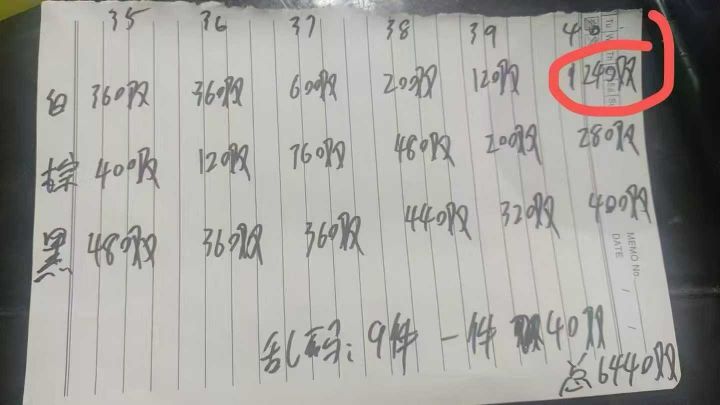 35 36 37 38 39 40
白 360双 360双 600双 200双 120双 1240双
棕 400双 120双 360双 480双 200双 280双
黑 480双 360双 360双 440双 320双 400双
MEMO No.
DATE / /
乱码: 9件 一件 40双
总 6440双